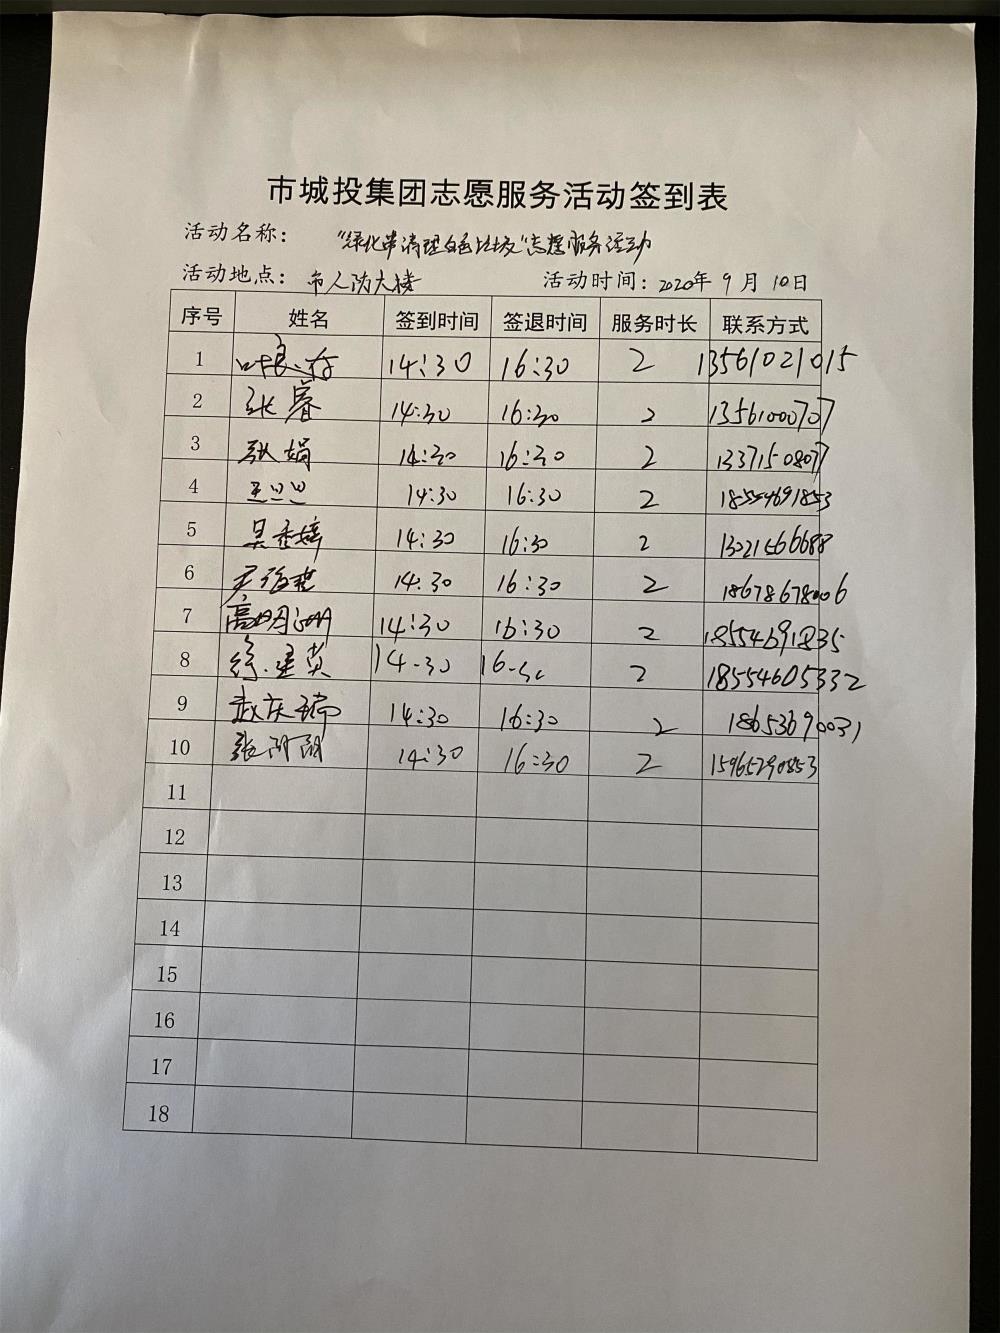 市城投集团志愿服务活动签到表
活动名称: "绿化带清理白色垃圾"志愿服务活动
活动地点: 市人防大楼 活动时间: 2020年 9月 10日
序号 姓名 签到时间 签退时间 服务时长 联系方式
1 14:30 16:30 2 13561021015
2 张睿 14:30 16:30 2 13561000707
3 张娟 14:30 16:30 2 13371508077
4 14:30 16:30 2 18554691853
5 吴香婷 14:30 16:30 2 13021566688
6 14:30 16:30 2 18678678006
7 14:30 16:30 2 18554691835
8 徐建英 14-30 16-30 2 18554605332
9 赵庆瑞 14:30 16:30 2 18653690031
10 张阴阴 14:30 16:30 2 15965290853
11
12
13
14
15
16
17
18